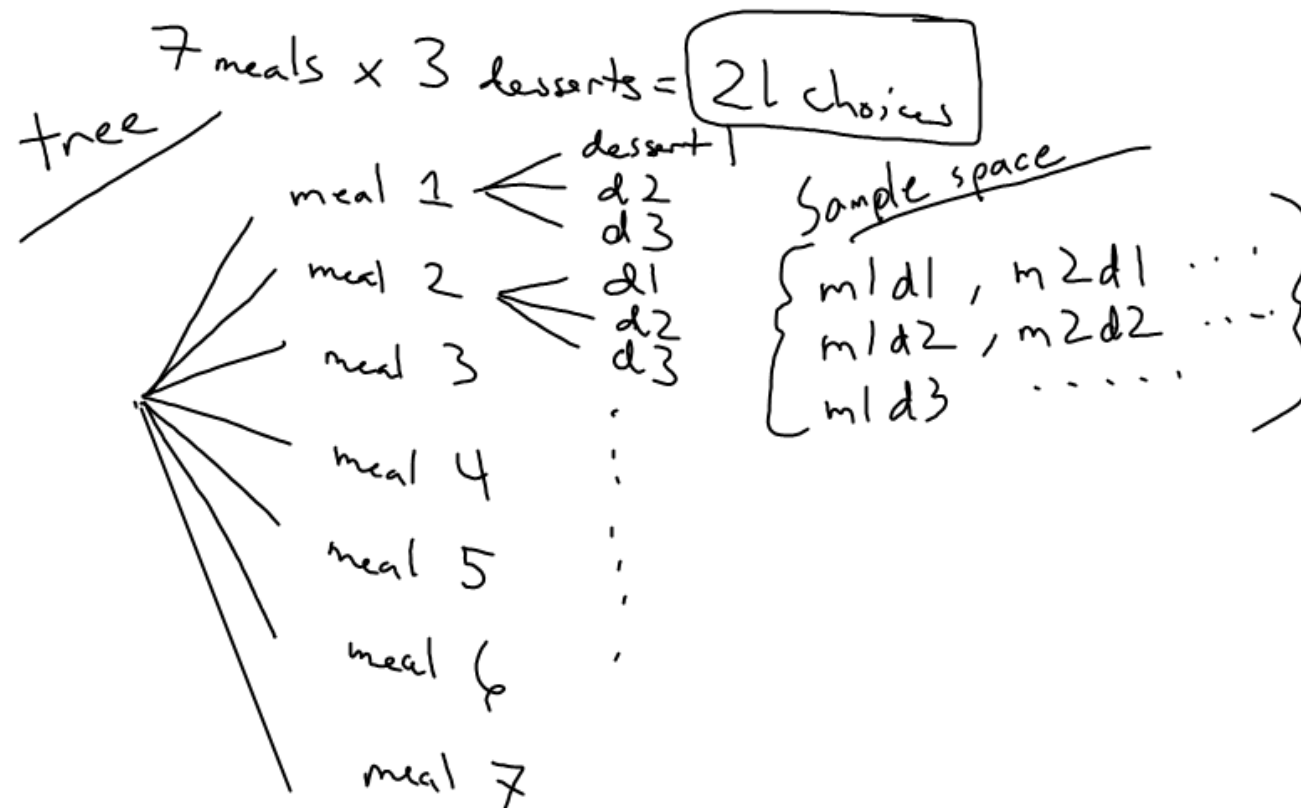 7 meals x 3 desserts = 21 choices
tree
meal 1
dessert 1
d2
d3
meal 2
d1
d2
d3
meal 3
meal 4
meal 5
meal 6
meal 7
Sample space
{ m1d1 , m2d1 .....
m1d2 , m2d2 .....
m1d3 ...... }